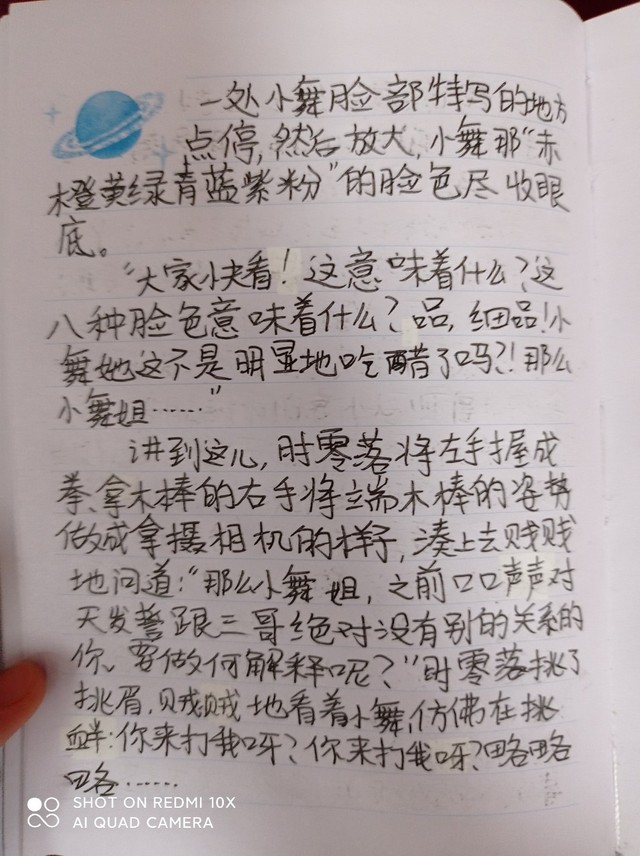 一处小舞脸部特写的地方
点停，然后放大，小舞那“赤
橙黄绿青蓝紫粉”的脸色尽收眼
底。
“大家小夫看！这意味着什么？这
八种脸色意味着什么？品，细品！小
舞她这不是明显地吃醋了吗？！那么
小舞姐……”
讲到这儿，时零落将左手握成
拳、拿木棒的右手将端木棒的姿势
做成拿摄相机的样子，凑上去贱贱
地问道：“那么小舞姐，之前口口声声对
天发誓跟三哥绝对没有别的关系的
你、要做何解释呢？”时零落挑了
挑眉，贱贱地看着小舞，仿佛在挑
衅：你来打我呀？你来打我呀？略略
略……
SHOT ON REDMI 10X
AI QUAD CAMERA